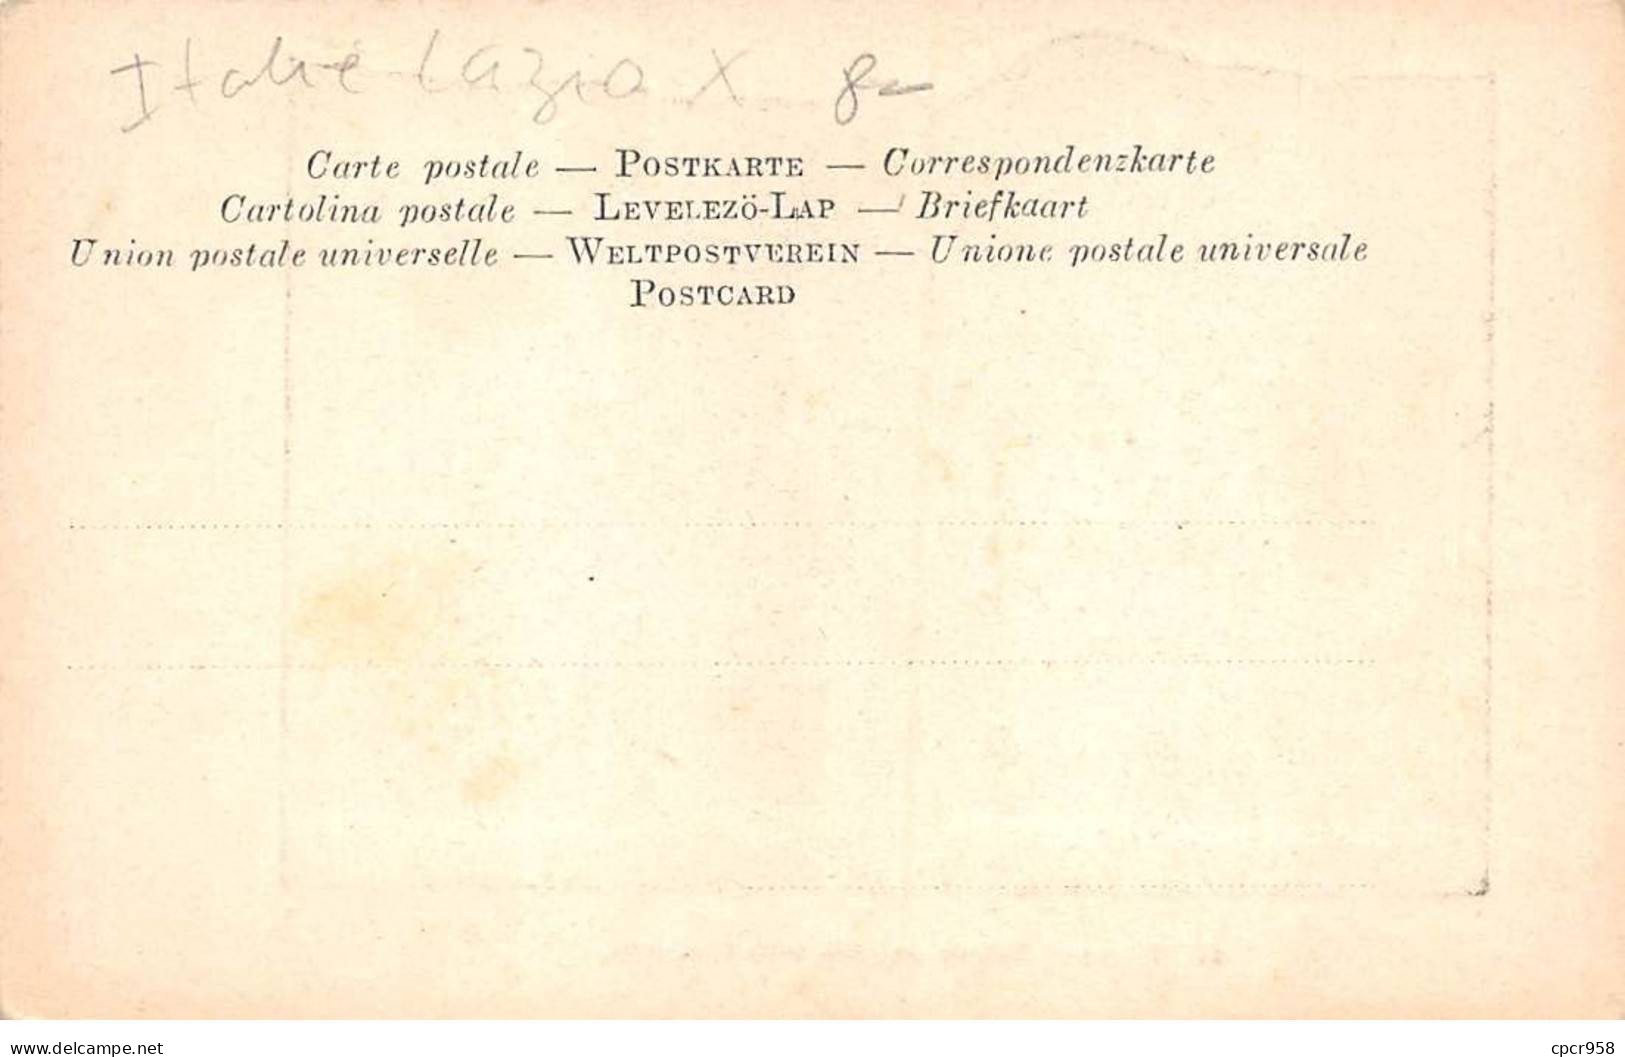 Italie Lazio X 8-
Carte postale — POSTKARTE — Correspondenzkarte
Cartolina postale — LEVELEZÖ-LAP — Briefkaart
Union postale universelle — WELTPOSTVEREIN — Unione postale universale
POSTCARD
www.delcampe.net cpcr958